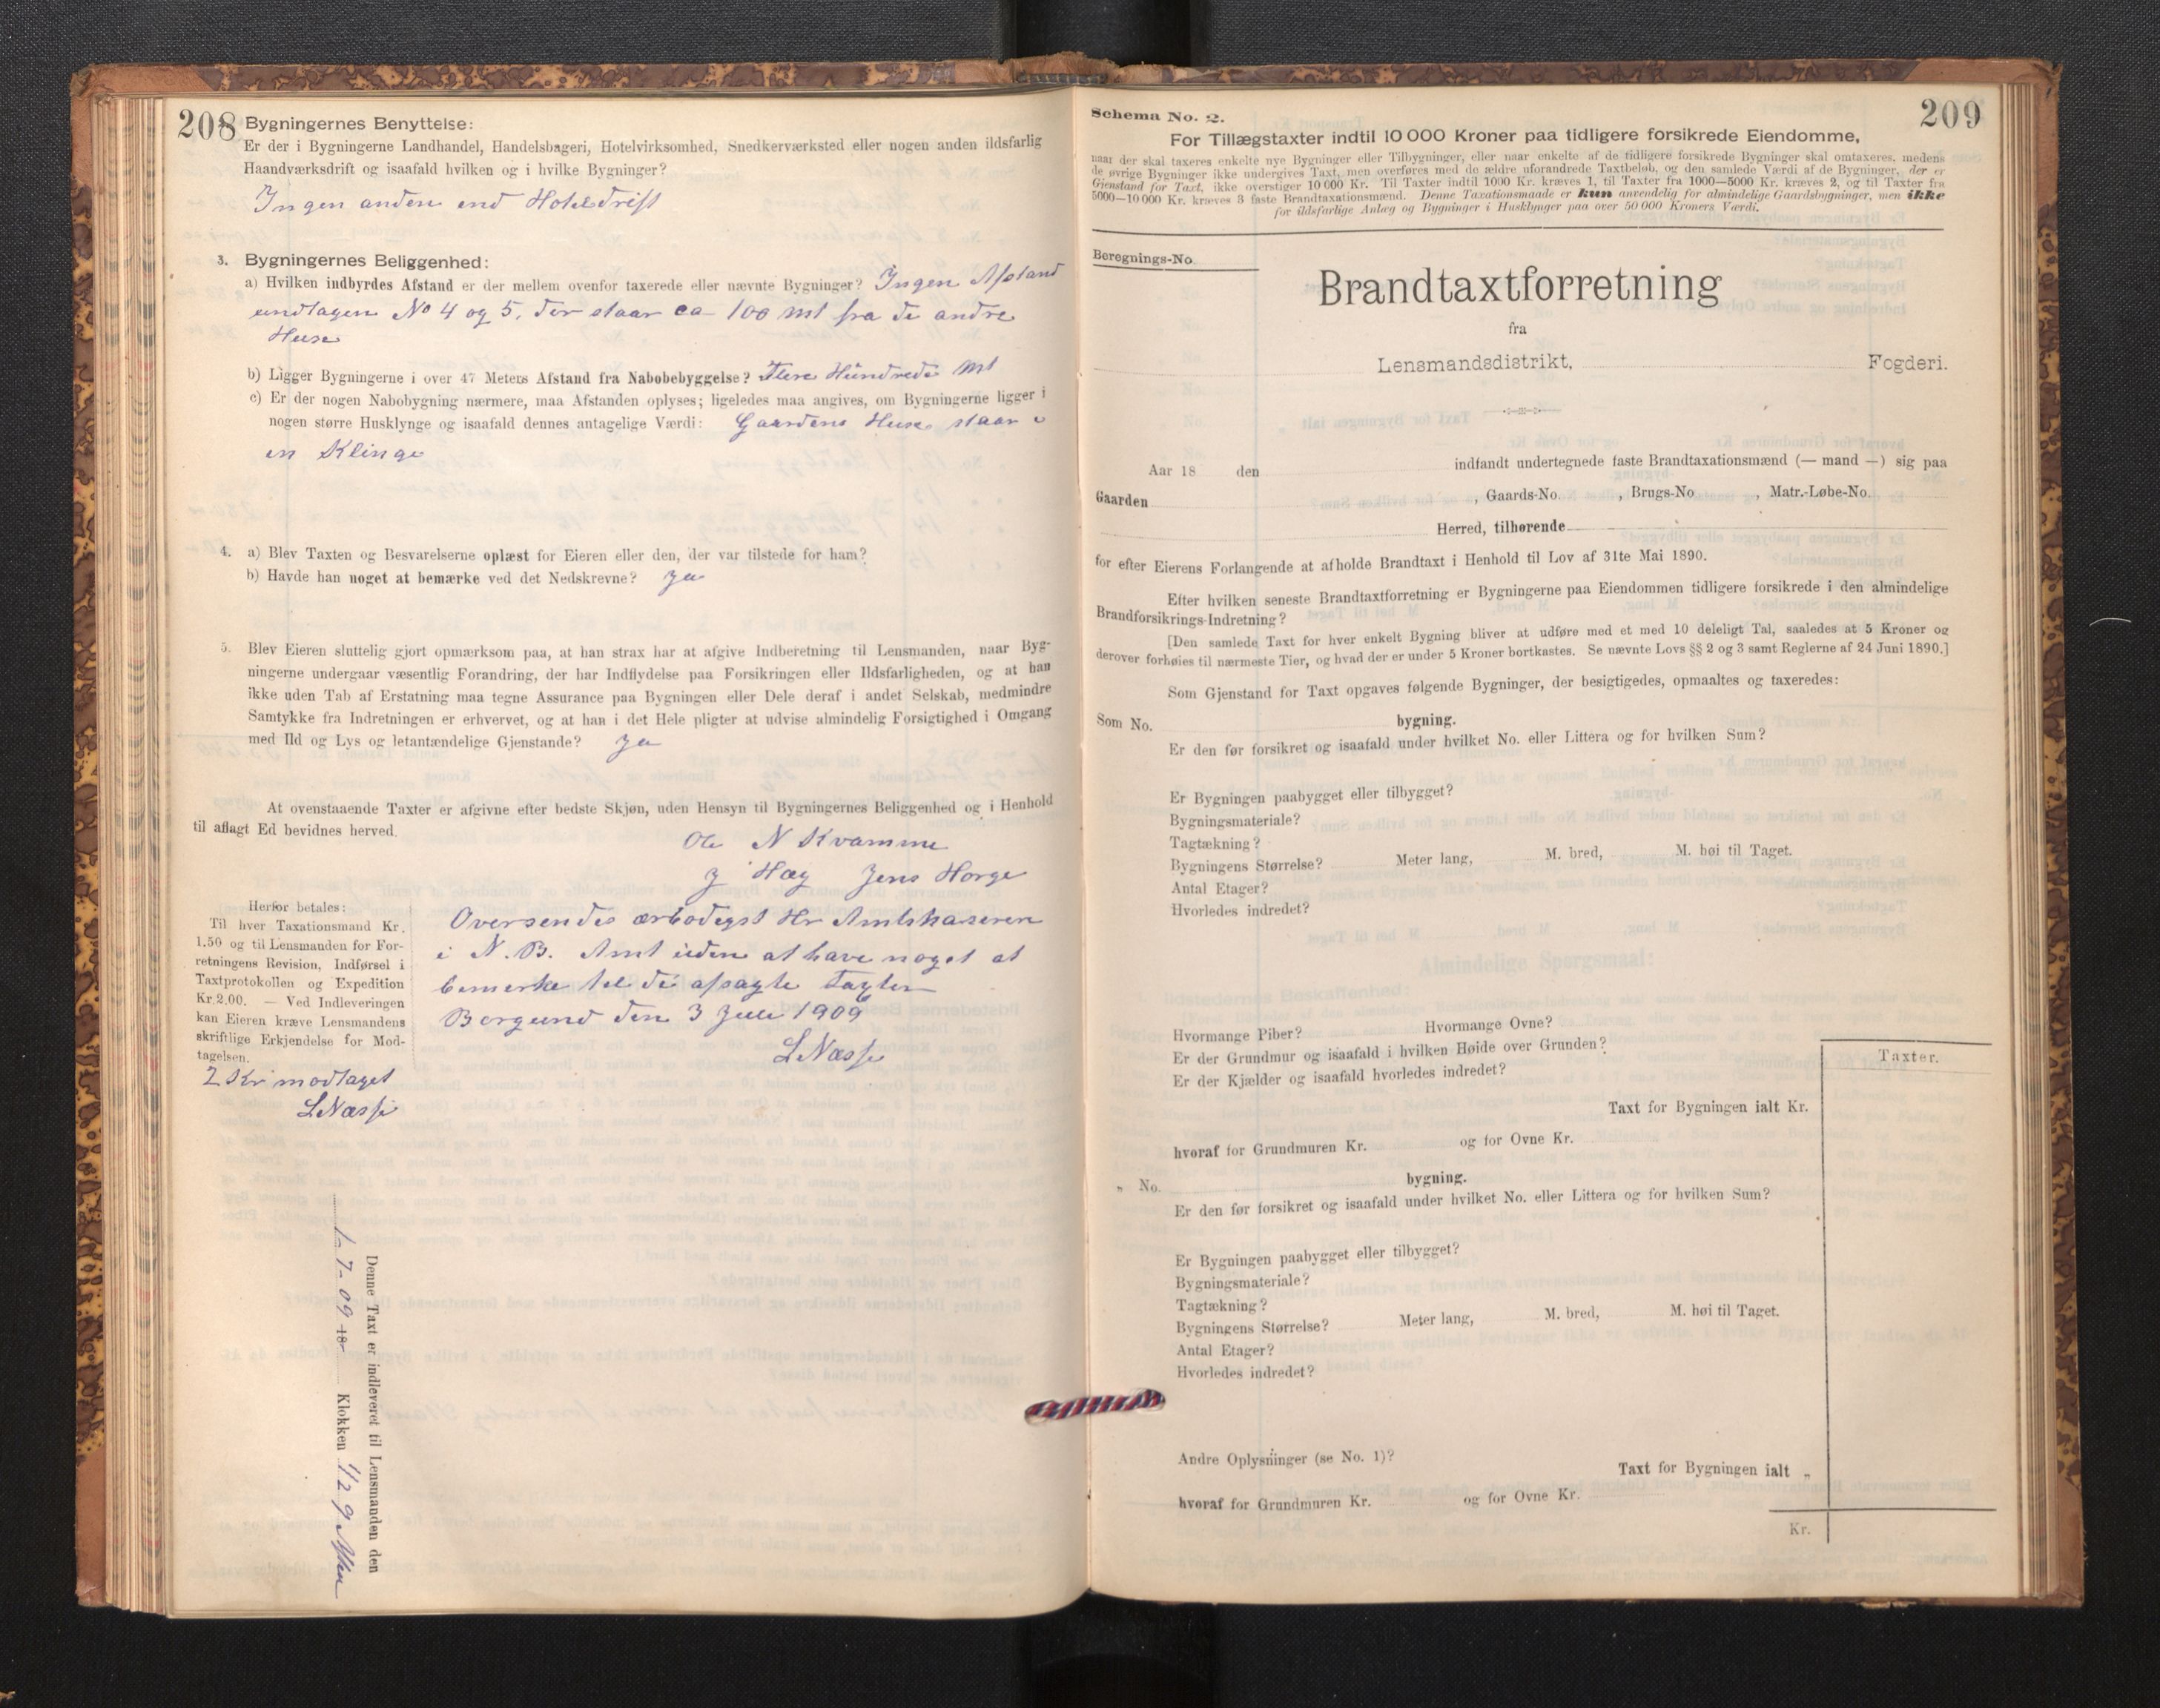 208
Bygningernes Benyttelse:
Er der i Bygningerne Landhandel, Handelsbageri, Hotelvirksomhed, Snedkerværksted eller nogen anden ildsfarlig
Haandværksdrift og isaafald hvilken og i hvilke Bygninger?
Ingen anden end Hoteldrift
3. Bygningernes Beliggenhed:
a) Hvilken indbyrdes Afstand er der mellem ovenfor taxerede eller nævnte Bygninger? Ingen Afstand
undtagen No 4 og 5, der staar ca 100 mt fra de andre
Huse
b) Ligger Bygningerne i over 47 Meters Afstand fra Nabobebyggelse? Flere Hundrede Mt
c) Er der nogen Nabobygning nærmere, maa Afstanden oplyses; ligeledes maa angives, om Bygningerne ligger i
nogen større Husklynge og isaafald dennes antagelige Værdi: Gaardens Huse staar i
en Klinge
4. a) Blev Taxten og Besvarelserne oplæst for Eieren eller den, der var tilstede for ham?
b) Havde han noget at bemærke ved det Nedskrevne? Ja
5. Blev Eieren sluttelig gjort opmærksom paa, at han strax har at afgive Indberetning til Lensmanden, naar Byg-
ningerne undergaar væsentlig Forandring, der har Indflydelse paa Forsikringen eller Ildsfarligheden, og at han
ikke uden Tab af Erstatning maa tegne Assurance paa Bygningen eller Dele deraf i andet Selskab, medmindre
Samtykke fra Indretningen er erhvervet, og at han i det Hele pligter at udvise almindelig Forsigtighed i Omgang
med Ild og Lys og letantændelige Gjenstande? Ja
At ovenstaaende Taxter er afgivne efter bedste Skjøn, uden Hensyn til Bygningernes Beliggenhed og i Henhold
til aflagt Ed bevidnes herved.
Ole N Kvamme
J Hæg Jens Horge
Herfor betales:
Til hver Taxationsmand Kr.
1.50 og til Lensmanden for For-
retningens Revision, Indførsel i
Taxtprotokollen og Expedition
Kr. 2.00. — Ved Indleveringen
kan Eieren kræve Lensmandens
skriftlige Erkjendelse for Mod-
tagelsen.
2 Kr modtaget
L Næsse
Oversendes ærbødigst Hr Amtskaseren
i N. B. Amt uden at have noget at
bemerke til de afsagte Taxter
Borgund den 3 Juli 1909
L Næsse
Denne Taxt er indleveret til Lensmanden den
1-7-09 18 Klokken 1/2 9 Aften
209
Schema No. 2.
For Tillægstaxter indtil 10 000 Kroner paa tidligere forsikrede Eiendomme,
naar der skal taxeres enkelte nye Bygninger eller Tilbygninger, eller naar enkelte af de tidligere forsikrede Bygninger skal omtaxeres, medens
de øvrige Bygninger ikke undergives Taxt, men overføres med de ældre uforandrede Taxtbeløb, og den samlede Værdi af de Bygninger, der er
Gjenstand for Taxt, ikke overstiger 10 000 Kr. Til Taxter indtil 1000 Kr. kræves 1, til Taxter fra 1000—5000 Kr. kræves 2, og til Taxter fra
5000—10 000 Kr. kræves 3 faste Brandtaxationsmænd. Denne Taxationsmaade er kun anvendelig for almindelige Gaardsbygninger, men ikke
for ildsfarlige Anlæg og Bygninger i Husklynger paa over 50 000 Kroners Værdi.
Beregnings-No
Brandtaxtforretning
fra
Lensmandsdistrikt, Fogderi.
Aar 18 den indfandt undertegnede faste Brandtaxationsmænd (— mand —) sig paa
Gaarden , Gaards-No. , Brugs-No , Matr.-Løbe-No.
Herred, tilhørende
for efter Eierens Forlangende at afholde Brandtaxt i Henhold til Lov af 31te Mai 1890.
Efter hvilken seneste Brandtaxtforretning er Bygningerne paa Eiendommen tidligere forsikrede i den almindelige
Brandforsikrings-Indretning?
[Den samlede Taxt for hver enkelt Bygning bliver at udføre med et med 10 deleligt Tal, saaledes at 5 Kroner og
derover forhøies til nærmeste Tier, og hvad der er under 5 Kroner bortkastes. Se nævnte Lovs §§ 2 og 3 samt Reglerne af 24 Juni 1890.]
Som Gjenstand for Taxt opgaves følgende Bygninger, der besigtigedes, opmaaltes og taxeredes:
Som No. bygning.
Er den før forsikret og isaafald under hvilket No. eller Littera og for hvilken Sum?
Er Bygningen paabygget eller tilbygget?
Bygningsmateriale?
Tagtækning?
Bygningens Størrelse? Meter lang, M. bred, M. høi til Taget.
Antal Etager?
Hvorledes indredet?
Hvormange Piber? Hvormange Ovne?
Er der Grundmur og isaafald i hvilken Høide over Grunden?
Er der Kjælder og isaafald hvorledes indredet?
Taxter.
Taxt for Bygningen ialt Kr.
hvoraf for Grundmuren Kr. og for Ovne Kr.
„ No. bygning.
Er den før forsikret og isaafald under hvilket No. eller Littera og for hvilken Sum?
Er Bygningen paabygget eller tilbygget?
Bygningsmateriale?
Tagtækning?
Bygningens Størrelse? Meter lang, M. bred, M. høi til Taget.
Antal Etager?
Hvorledes indredet?
Andre Oplysninger (se No. 1)?
Taxt for Bygningen ialt „
hvoraf for Grundmuren Kr. og for Ovne Kr.
Kr.